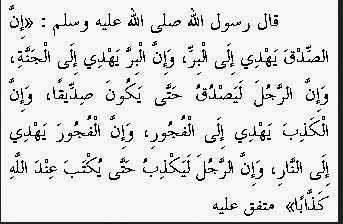 قال رسول الله صلى الله عليه وسلم : «إِنَّ
الصِّدْقَ يَهْدِي إِلَى الْبِرِّ، وَإِنَّ الْبِرَّ يَهْدِي إِلَى الْجَنَّةِ،
وَإِنَّ الرَّجُلَ لَيَصْدُقُ حَتَّى يَكُونَ صِدِّيقًا، وَإِنَّ
الْكَذِبَ يَهْدِي إِلَى الْفُجُورِ، وَإِنَّ الْفُجُورَ يَهْدِي
إِلَى النَّارِ، وَإِنَّ الرَّجُلَ لَيَكْذِبُ حَتَّى يُكْتَبَ عِنْدَ اللَّهِ
كَذَّابًا» متفق عليه